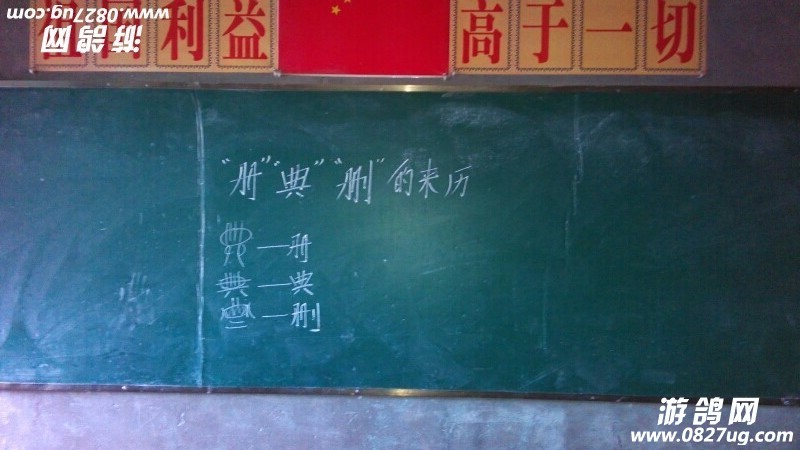 www.0827ug.com
游鸽网
祖国利益 高于一切
“册”“典”“删”的来历
—册
—典
—删
游鸽网
www.0827ug.com